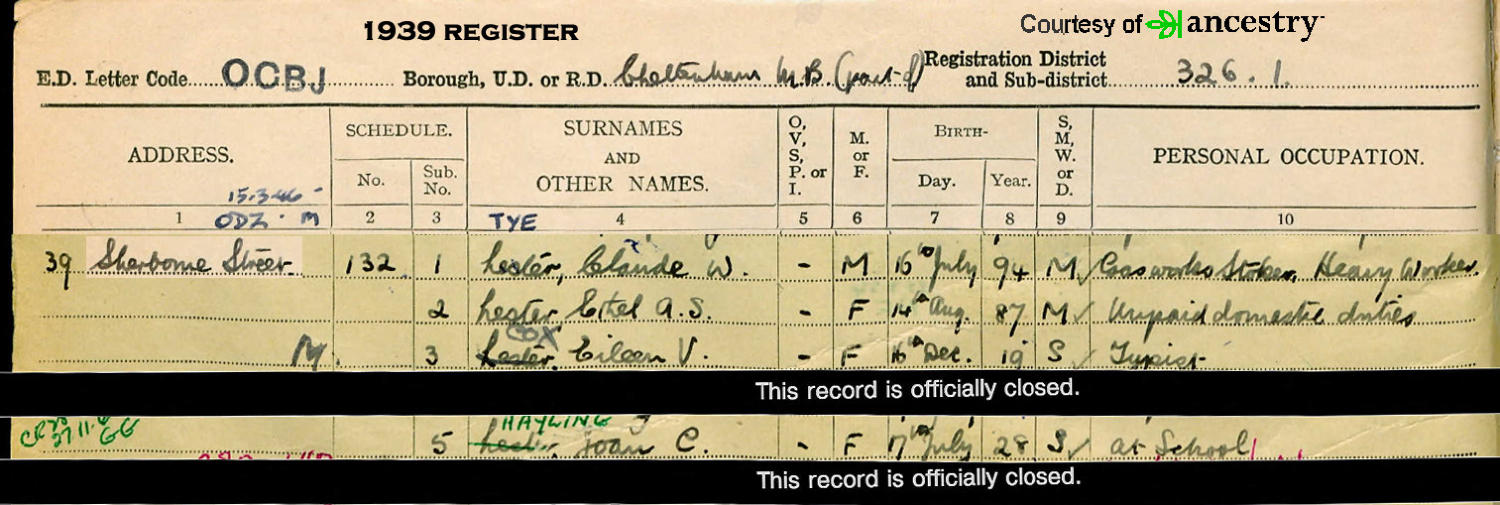 1939 REGISTER
Courtesy of ancestry
E.D. Letter Code OCBJ Borough, U.D. or R.D. Cheltenham M.B. (part of) Registration District and Sub-district 326.1.
ADDRESS. SCHEDULE. No. Sub. No. SURNAMES AND OTHER NAMES. O, V, S, P. or I. M. or F. BIRTH- Day. Year. S, M, W. or D. PERSONAL OCCUPATION.
15.3.46
1 ODZ. M 2 3 TYE 4 5 6 7 8 9 10
39 Sherborne Street 132 1 Lester, Claude W. - M 16th July 94 M Gasworks Stoker, Heavy Worker.
2 Lester, Ethel A.S. - F 14th Aug. 87 M Unpaid domestic duties
COX
M. 3 Lester, Eileen V. - F 16th Dec. 19 S Typist
This record is officially closed.
HAYLING
5 Lester, Joan C. - F 17th July 28 S at School
This record is officially closed.